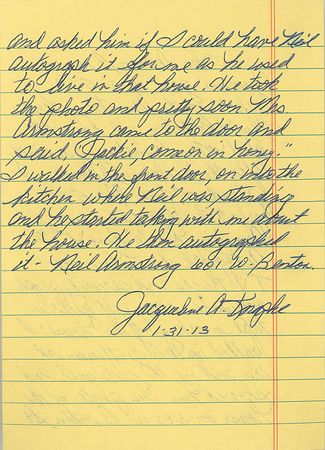 and asked him if I could have Neil
autograph it for me as he used
to live in that house. He took
the photo and pretty soon Mrs
Armstrong came to the door and
said, "Jackie come on in hony."
I walked in the front door, on into the
kitchen where Neil was standing
and he started talking with me about
the house. He then autographed
it - Neil Armstrong 601 W. Benton.
Jacqueline A.
1-31-13